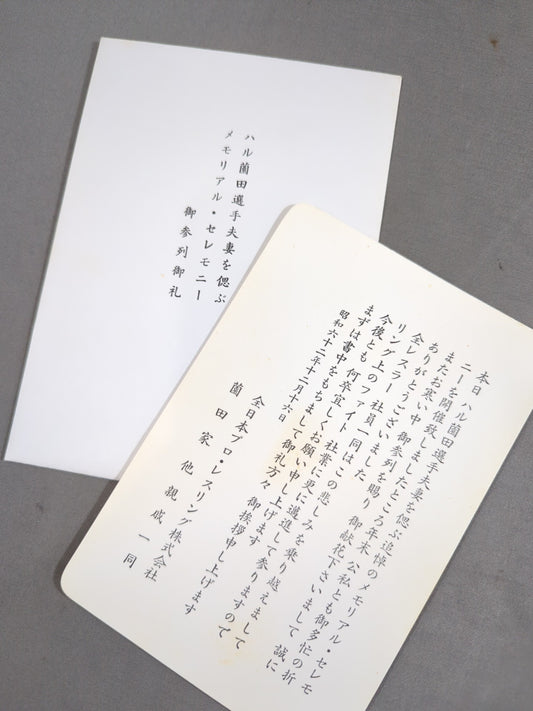 ハル薗田選手夫妻を偲ぶ
メモリアル・セレモニー
御参列御礼
本日ハル薗田選手夫妻を偲ぶ追悼のメモリアル・セレモ
ニーを開催致しましたところ年末 公私とも御多忙の折
またお寒い中 御参列を賜り 御献花下さいまして 誠に
ありがとうございました
全レスラー 社員一同はこの悲しみを乗り越えまして
リング上のファイト 社業に更に邁進して参りますので
今後とも何卒宜しくお願い申し上げます
まずは書中をもちまして御礼方々 御挨拶申し上げます
昭和六十二年十二月十六日
全日本プロ・レスリング株式会社
薗田家他親戚一同